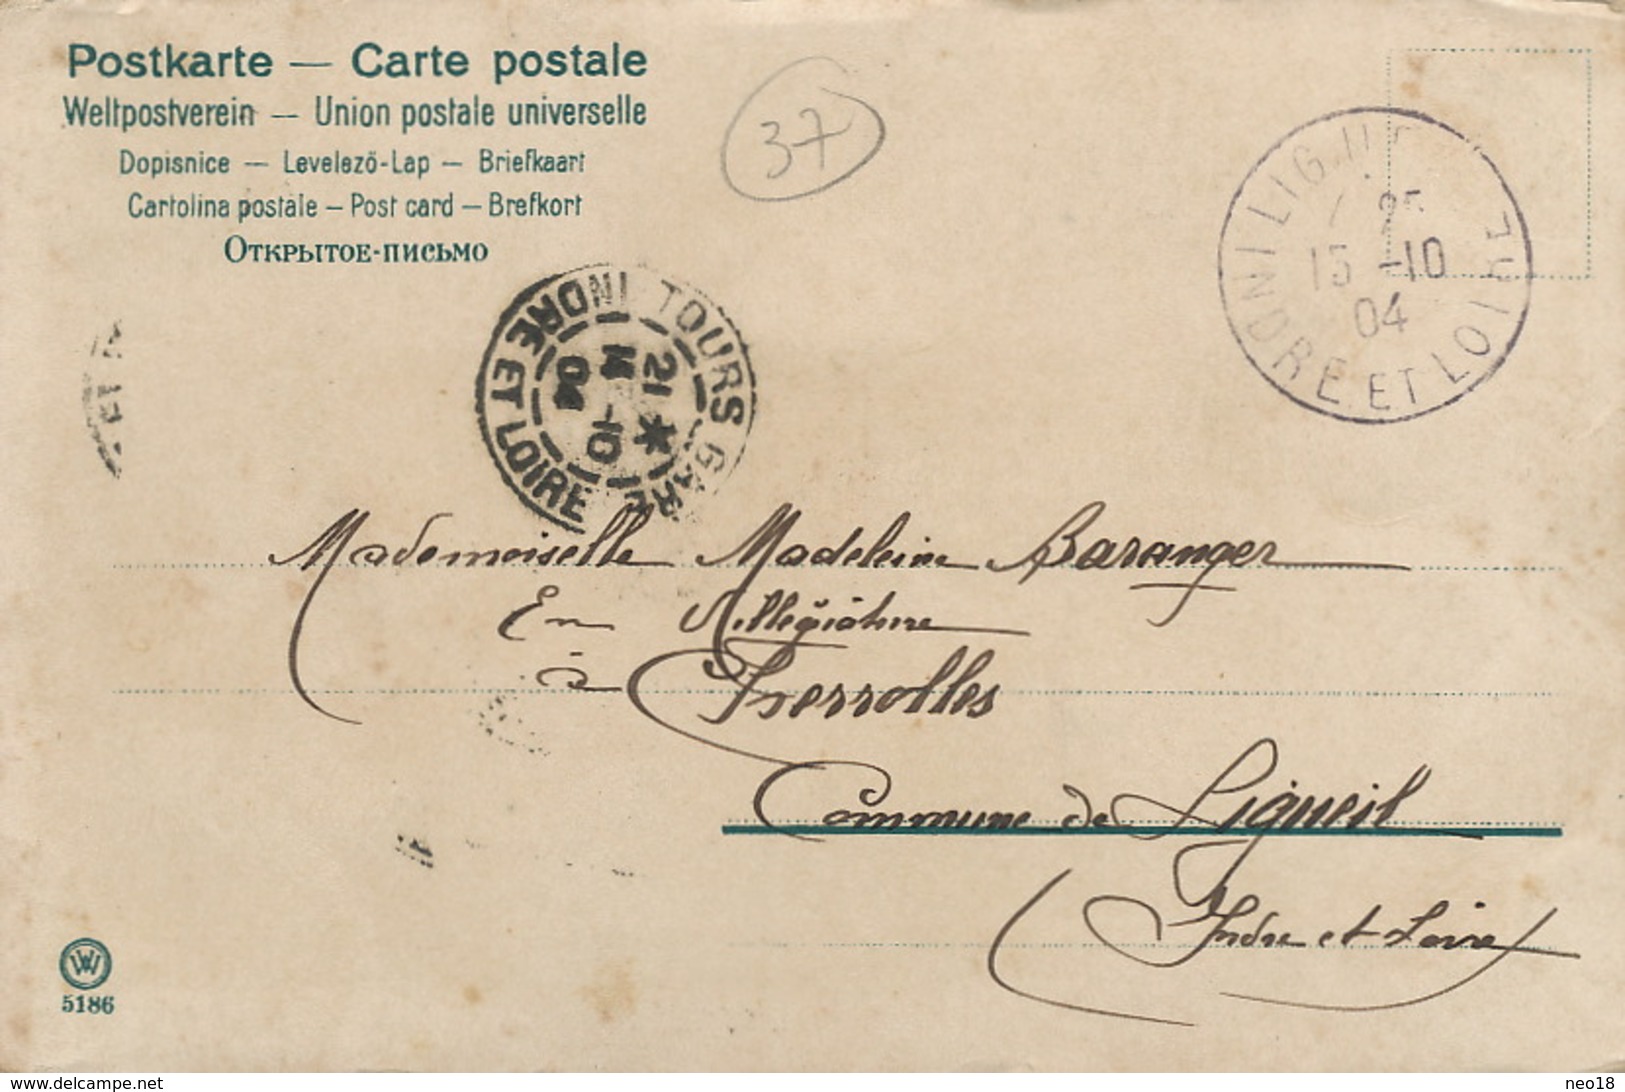 Postkarte — Carte postale
Weltpostverein — Union postale universelle
Dopisnice — Levelező-Lap — Briefkaart
Cartolina postale — Post card — Brefkort
Открытое-письмо
37
LIGUEIL
15 -10
04
INDRE ET LOIRE
TOURS GARE
21 *
14 -10
04
INDRE ET LOIRE
Mademoiselle Madeleine Baranger
En Villégiature
à Ferrolles
Commune de Ligueil
(Indre et Loire)
W
5186
www.delcampe.net
neo18